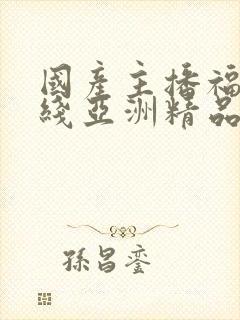 國産主播福
綫亞洲精品
孫昌鸾